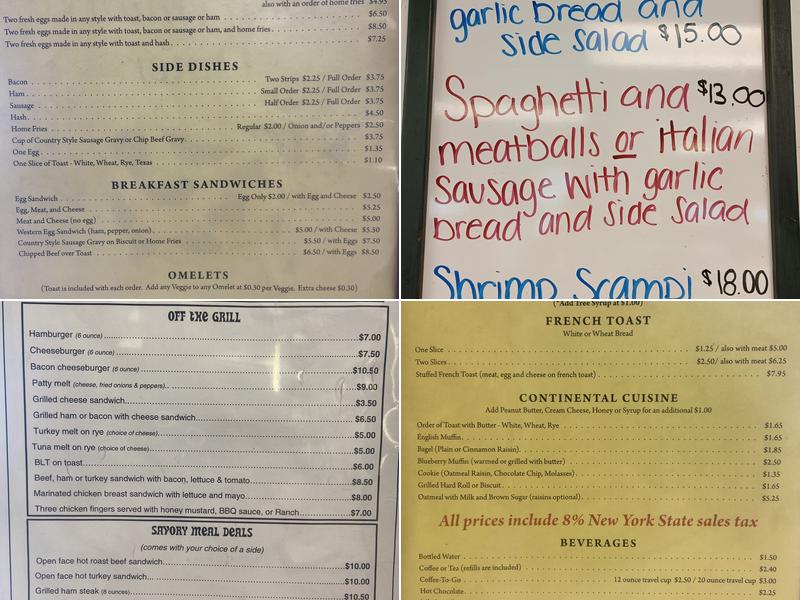 also with an order of home fries $4.95
Two fresh eggs made in any style with toast, bacon or sausage or ham $6.50
Two fresh eggs made in any style with toast, bacon or sausage or ham, and home fries $8.50
Two fresh eggs made in any style with toast and hash $7.25
SIDE DISHES
Bacon Two Strips $2.25 / Full Order $3.75
Ham Small Order $2.25 / Full Order $3.75
Sausage Half Order $2.25 / Full Order $3.75
Hash $4.50
Home Fries Regular $2.00 / Onion and/or Peppers $2.50
Cup of Country Style Sausage Gravy or Chip Beef Gravy $3.75
One Egg $1.35
One Slice of Toast - White, Wheat, Rye, Texas $1.10
BREAKFAST SANDWICHES
Egg Sandwich Egg Only $2.00 / with Egg and Cheese $2.50
Egg, Meat, and Cheese $5.25
Meat and Cheese (no egg) $5.00
Western Egg Sandwich (ham, pepper, onion) $5.00 / with Cheese $5.50
Country Style Sausage Gravy on Biscuit or Home Fries $5.50 / with Eggs $7.50
Chipped Beef over Toast $6.50 / with Eggs $8.50
OMELETS
(Toast is included with each order. Add any Veggie to any Omelet at $0.30 per Veggie. Extra cheese $0.30)
garlic bread and
side salad $15.00
Spaghetti and $13.00
meatballs or italian
sausage with garlic
bread and side salad
Shrimp Scampi $18.00
OFF THE GRILL
Hamburger (6 ounce) $7.00
Cheeseburger (6 ounce) $7.50
Bacon cheeseburger (6 ounce) $10.50
Patty melt (cheese, fried onions & peppers) $9.00
Grilled cheese sandwich $3.50
Grilled ham or bacon with cheese sandwich $6.50
Turkey melt on rye (choice of cheese) $5.00
Tuna melt on rye (choice of cheese) $5.00
BLT on toast $6.00
Beef, ham or turkey sandwich with bacon, lettuce & tomato $8.50
Marinated chicken breast sandwich with lettuce and mayo $8.00
Three chicken fingers served with honey mustard, BBQ sauce, or Ranch $7.00
SAVORY MEAL DEALS
(comes with your choice of a side)
Open face hot roast beef sandwich $10.00
Open face hot turkey sandwich $10.00
Grilled ham steak (8 ounces) $10.50
(*Add Tree Syrup at $1.00)
FRENCH TOAST
White or Wheat Bread
One Slice $1.25 / also with meat $5.00
Two Slices $2.50 / also with meat $6.25
Stuffed French Toast (meat, egg and cheese on french toast) $7.95
CONTINENTAL CUISINE
Add Peanut Butter, Cream Cheese, Honey or Syrup for an additional $1.00
Order of Toast with Butter - White, Wheat, Rye $1.65
English Muffin $1.65
Bagel (Plain or Cinnamon Raisin) $1.85
Blueberry Muffin (warmed or grilled with butter) $2.50
Cookie (Oatmeal Raisin, Chocolate Chip, Molasses) $1.35
Grilled Hard Roll or Biscuit $1.65
Oatmeal with Milk and Brown Sugar (raisins optional) $5.25
All prices include 8% New York State sales tax
BEVERAGES
Bottled Water $1.50
Coffee or Tea (refills are included) $2.40
Coffee-To-Go 12 ounce travel cup $2.50 / 20 ounce travel cup $3.00
Hot Chocolate $2.25